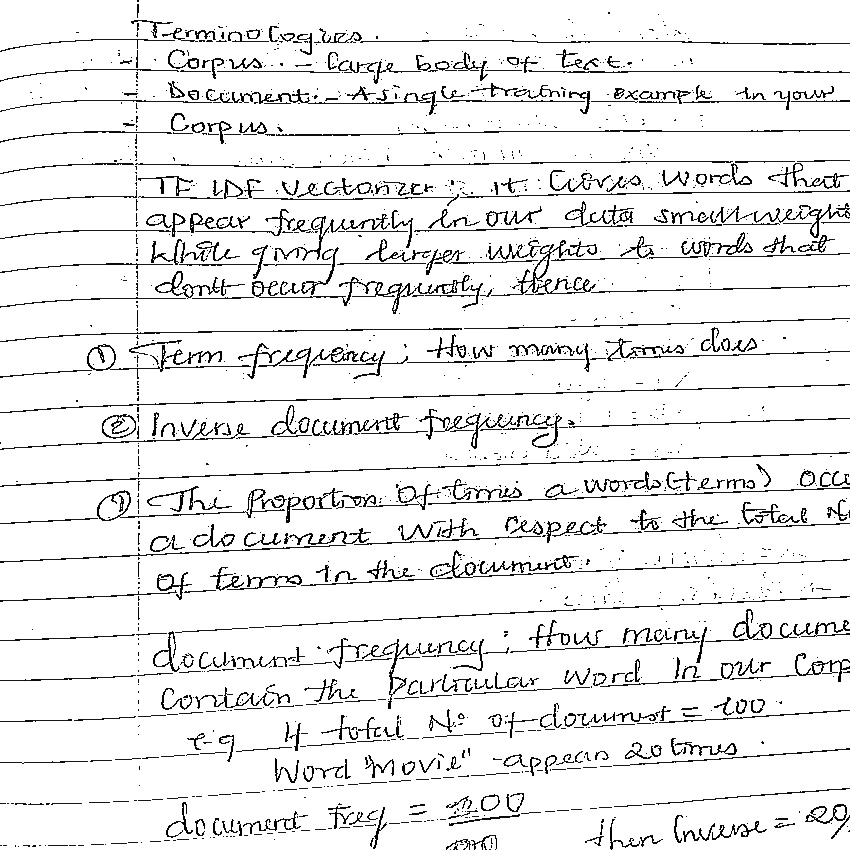 Terminologies.
- Corpus. - Large body of text.
- Document. - A single training example in your
- Corpus.
TF IDF Vectorizer; it Gives words that
appear frequently in our data small weight
While giving larger weights to words that
dont occur frequently, thence
① Term frequency; How many times does
② Inverse document frequency.
① The proportion of times a words(terms) occu
a document with respect to the total No
of terms in the document.
document frequency; How many docume
Contain the particular word in our Corp
e.g If total No of document = 100.
Word "Movie" appear 20 times.
document freq = 200
then Inverse = 20/